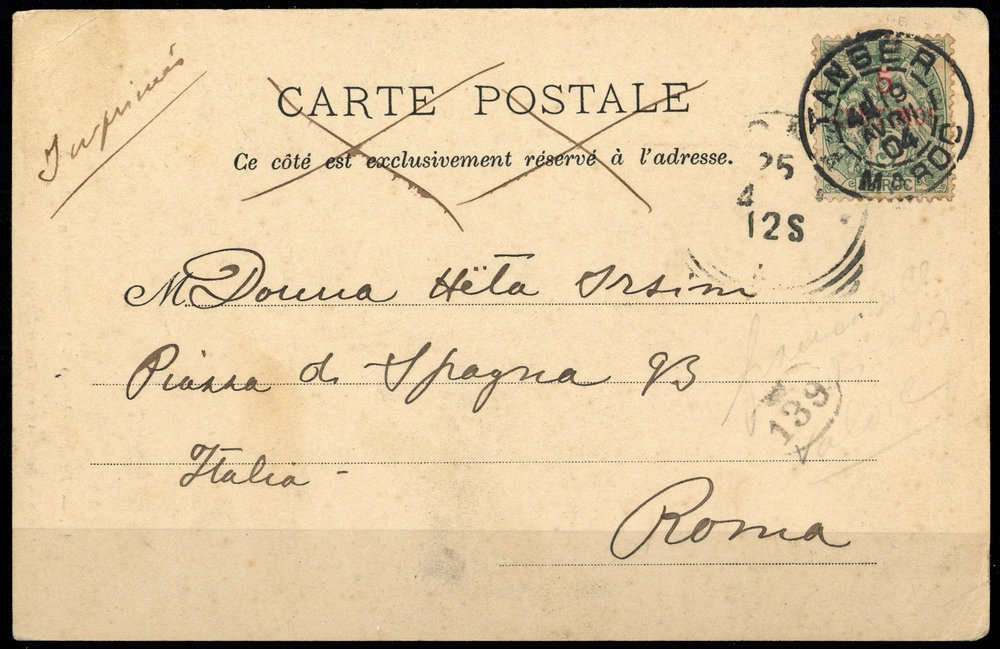 Imprimés
CARTE POSTALE
Ce côté est exclusivement réservé à l'adresse.
TANGER
5
19
AVRIL
04
MAROC
MAROC
25
4
12S
M Donna
Piazza di Spagna
Italia -
Roma
139